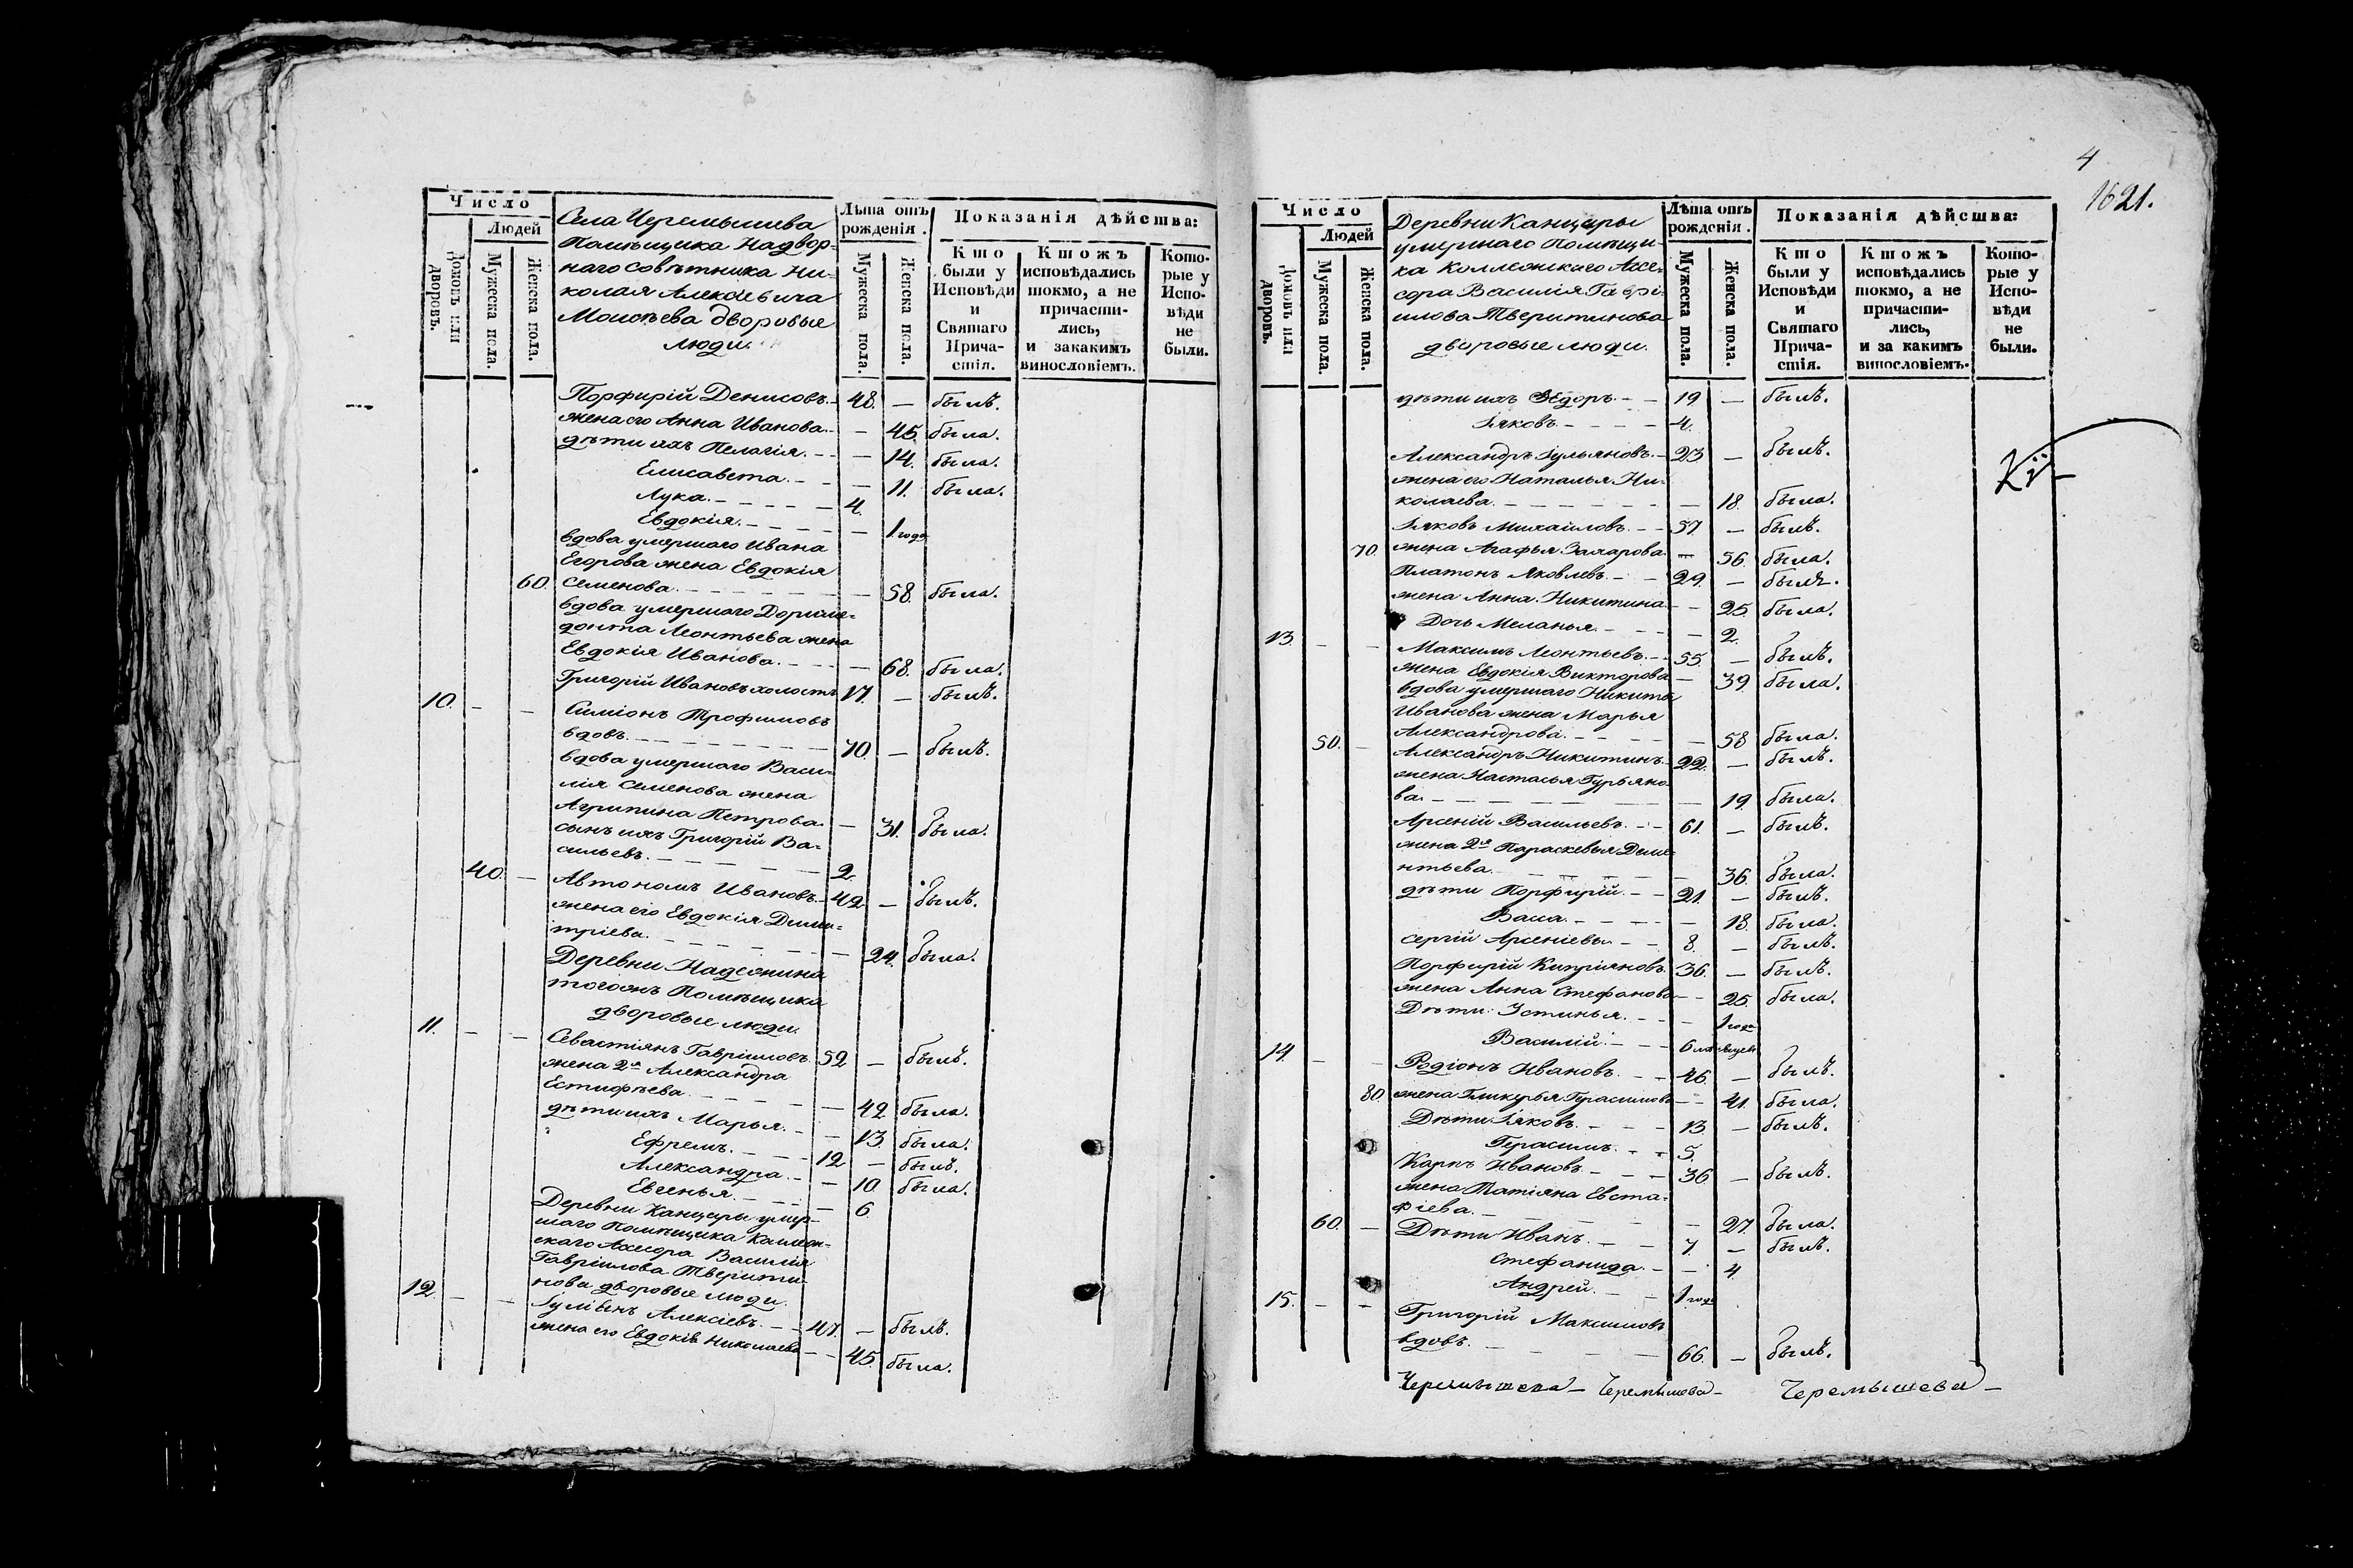 Число
Людей
Домовъ или дворовъ.
Мужеска пола.
Женска пола.
Села Черемышева
Помѣщика Надвор-
наго совѣтника Ни-
колая Алексіевича
Моисѣева дворовые
люди.
Лѣта отъ рожденія.
Мужеска пола.
Женска пола.
Показанія дѣйства:
Кто были у Исповѣди и Святаго Прича-стія.
Ктожъ исповѣдались токмо, а не причасти-лись, и закакимъ винословіемъ.
Кото-рые у Испо-вѣди не были.
Порфирій Денисовъ. 48. — былъ.
жена его Анна Иванова. — 45. была.
дѣти ихъ Пелагія. — 14. была.
Елисавета. — 11. была.
Лука. 4.
Евдокія. — 1 года
вдова умершаго Ивана
Егорова жена Евдокія
60. Семенова. — 58. была.
вдова умершаго Дориме-
донта Леонтьева жена
Евдокія Иванова. — 68. была.
Григорій Ивановъ холостъ 17. — былъ.
10. — — Симіонъ Трофимовъ
вдовъ. 70. — былъ.
вдова умершаго Васи-
лія Семенова жена
Агрипина Петрова. — 31. была.
сынъ ихъ Григорій Ва-
сильевъ. 2.
40. — Автономъ Ивановъ. 42. — былъ.
жена его Евдокія Дими-
тріева. — 24. была.
Деревни Надежнина
тогожъ Помѣщика
дворовые люди.
11. — — Севастіянъ Гавріиловъ. 52 — былъ.
жена 2я Александра
Естифѣева. — 42 была.
дѣти ихъ Марья. — 13. была.
Ефремъ. 12 — былъ.
Александра. — 10. была.
Евгенья. — 6.
Деревни Канцеры умер-
шаго Помѣщика Коллеж-
скаго Ассесора Василія
Гавріилова Тверити-
нова дворовые люди.
12. — — Іуліянъ Алексіевъ. 47. — былъ.
жена его Евдокія Николаева — 45. была.
4
1621.
Число
Людей
Домовъ или дворовъ.
Мужеска пола.
Женска пола.
Деревни Канцеры
умершаго Помѣщи-
ка Коллежскаго Ассе-
сора Василія Гаврі-
илова Тверитинова
дворовые люди.
Лѣта отъ рожденія.
Мужеска пола.
Женска пола.
Показанія дѣйсшва:
Кто были у Исповѣди и Святаго Прича-стія.
Ктожъ исповѣдались токмо, а не причасти-лись, и за какимъ винословіемъ.
Кото-рые у Испо-вѣди не были.
дѣти ихъ Ѳедоръ. 19 — былъ.
Іяковъ. 4.
Александръ Іульяновъ. 23 — былъ.
жена его Наталья Ни-
колаева. — 18. была.
Іяковъ Михаиловъ. 57. — былъ.
70. жена Агафья Захарова. — 56. была.
Платонъ Яковлевъ. 29. — былъ.
жена Анна Никитина. — 25. была.
Дочь Меланья. — 2.
13. — — Максимъ Леонтьевъ. 55. — былъ.
жена Евдокія Викторова — 39. была.
вдова умершаго Никиты
Иванова жена Марья
Александрова. — 58 была.
50. — Александръ Никитинъ. 22. — былъ.
жена Настасья Гурьяно-
ва. — 19. была.
Арсеній Васильевъ. 61. — былъ.
жена 2я Параскевья Деме-
нтьева. — 36. была.
дѣти Порфирій. 21. — былъ.
Васса. — 18. была.
Сергій Арсеніевы. 8. — былъ.
Порфирій Кипріяновъ. 36. — былъ.
жена Анна Стефанова — 25. была.
Дѣти: Устинья. — 1 года
Василій. 6 мѣсяцев
14. — — Родіонъ Ивановъ. 46. — былъ.
80. жена Гликерья Герасимова — 41. была.
Дѣти Іяковъ. 13. — былъ.
Герасимъ. 5.
Карпъ Ивановъ. 36 — былъ.
жена Татіяна Евста-
фіева. — 27. была.
60. — Дѣти Иванъ. 7. — былъ.
Стефанида. — 4.
Андрей. 1 года
15. — — Григорій Максимовъ
вдовъ. 66. — былъ.
Черемышева — Черемышева — Черемышева —